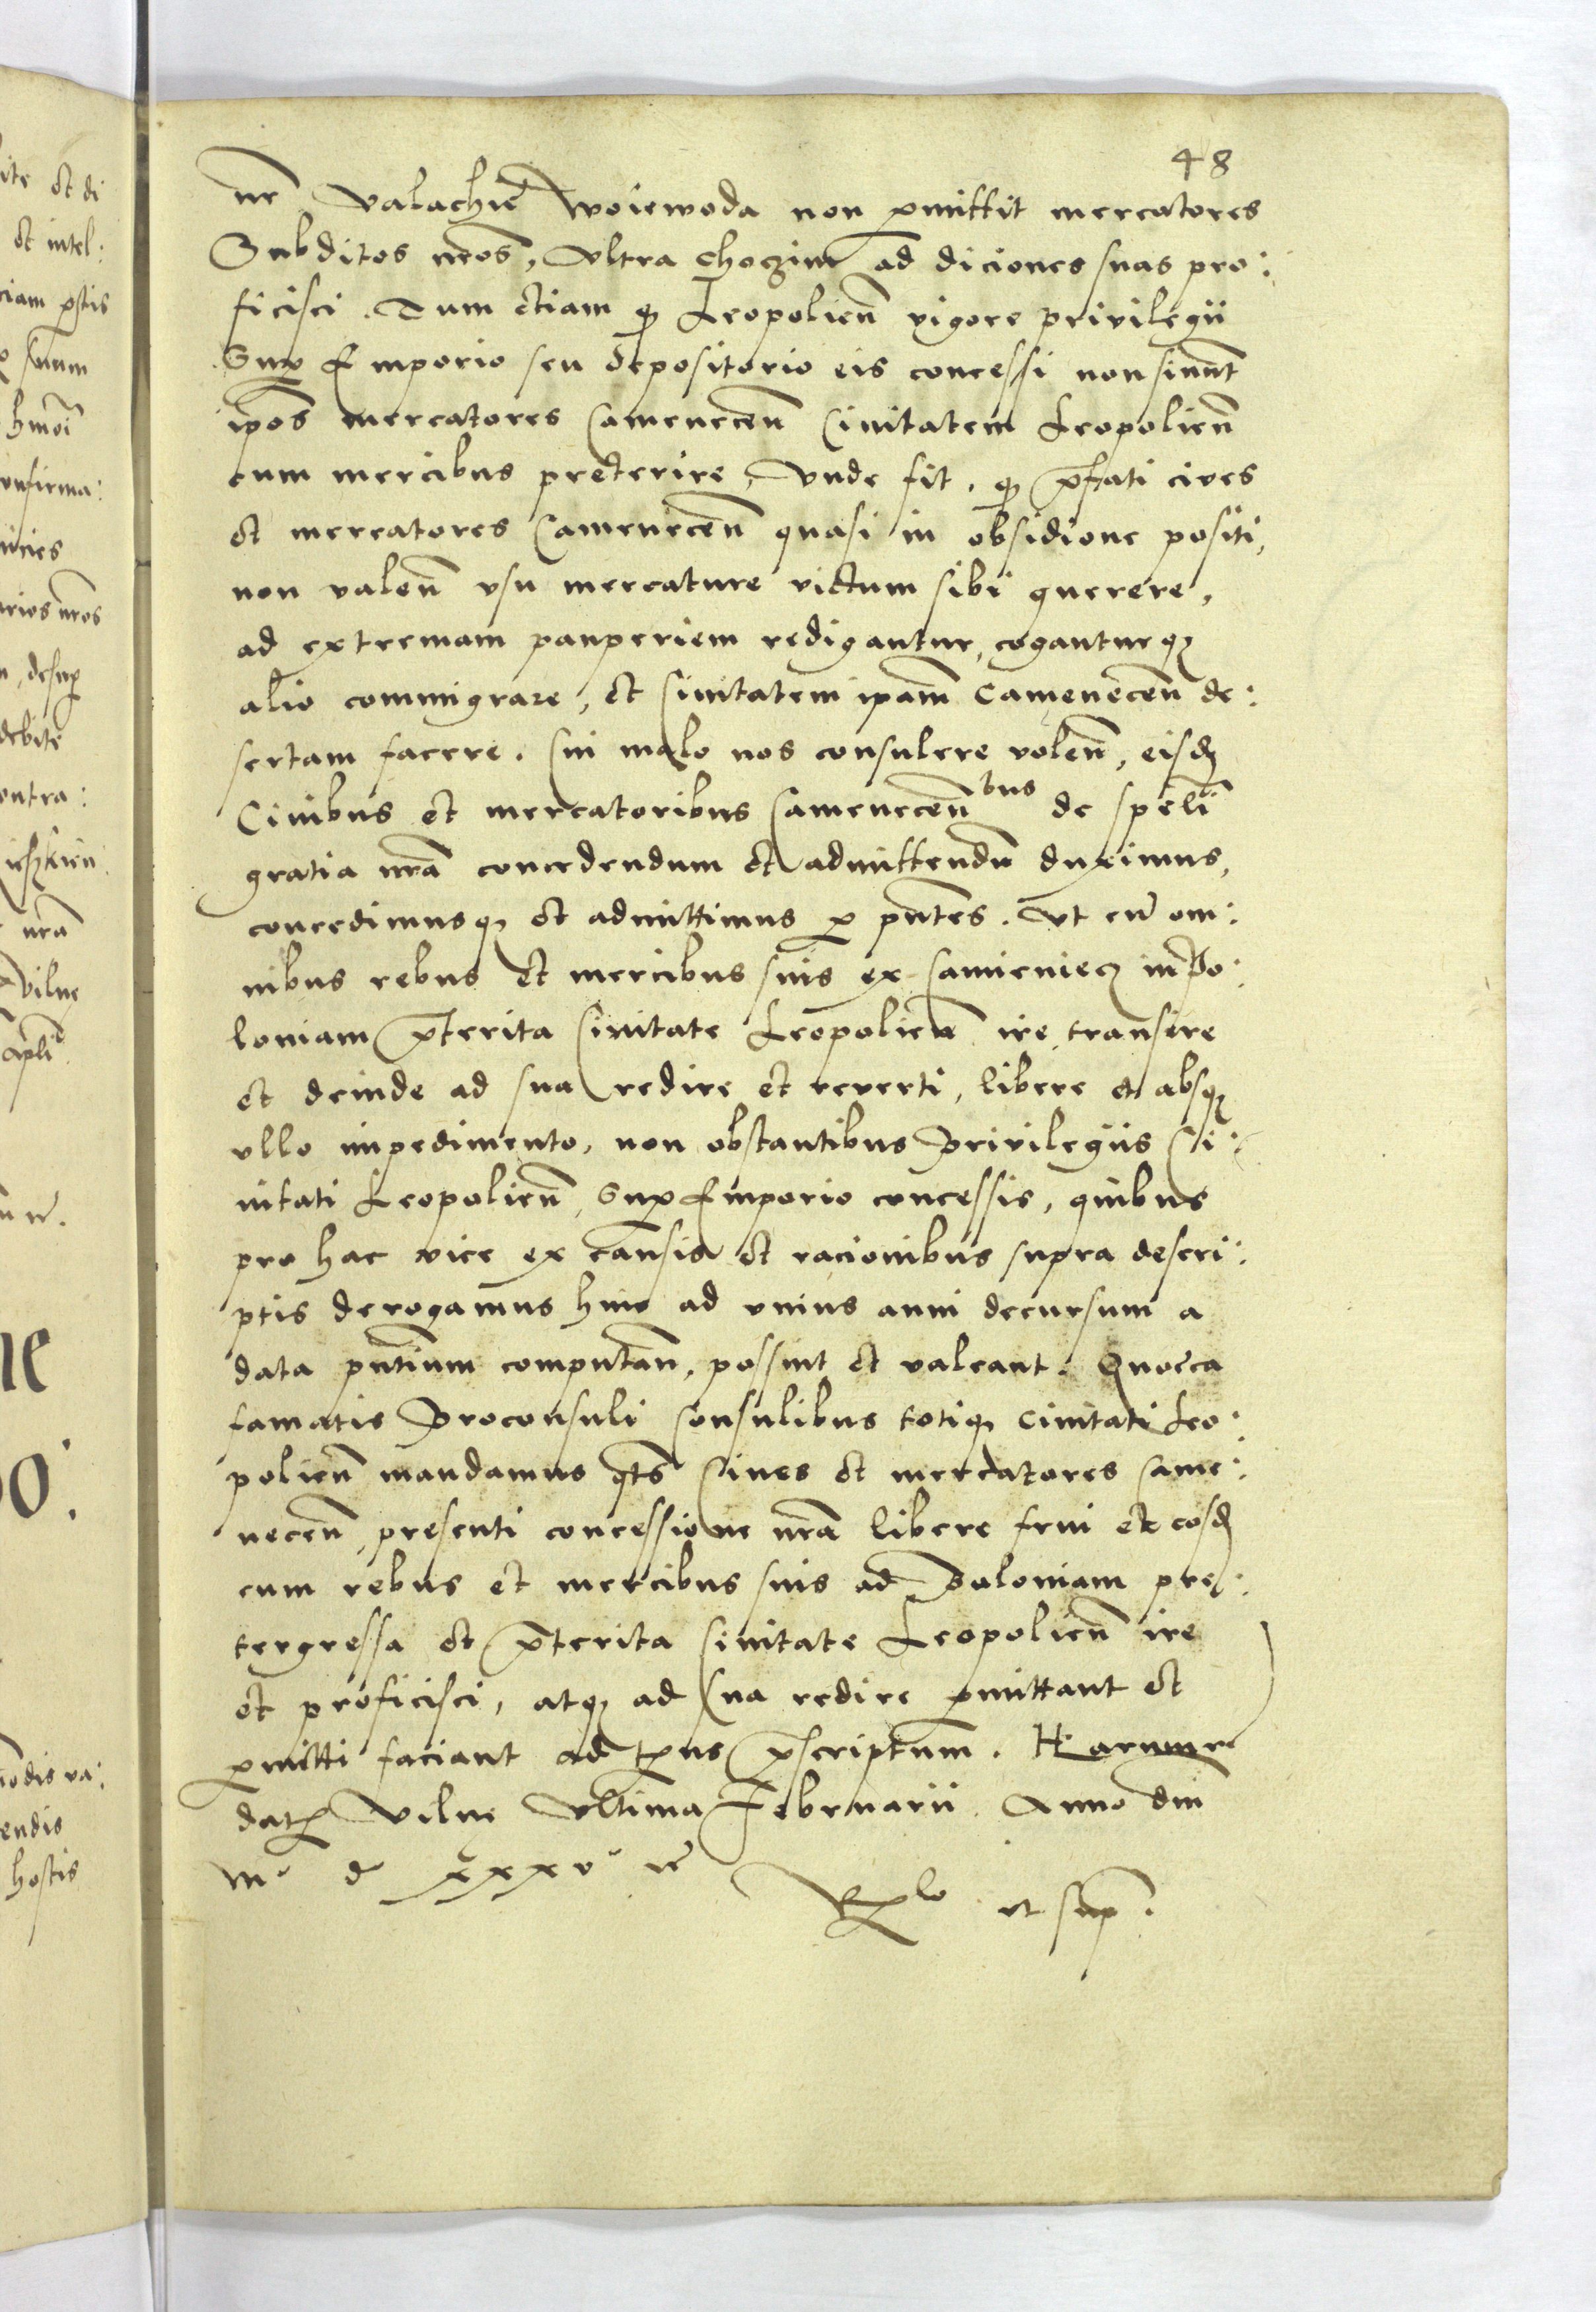 48
ne Valachie woiewoda non pmittit mercatores
Subditos nros, Vltra choczim ad diciones suas pro:
ficisci. Tum etiam q Leopolien vigore privilegii
Sup Emporio seu depositorio eis concessi non sinunt
ipos mercatores Camenecen Civitatem Leopolien
cum mercibus preterire, Vnde fit, q pfati cives
et mercatores Camenecen quasi in obsidione positi,
non valen vsu mercature victum sibi querere,
ad extremam pauperiem redigantur, coganturq
alio commigrare, et Civitatem ipam Camenecen de:
sertam facere. Cui malo nos consulere volen, eisd
Civibus et mercatoribus Camenecen bus de speli
gratia nra concedendum et admittendu duximus,
concedimusq et admittimus p pntes. Vt cu om:
nibus rebus et mercibus suis ex Camieniecz in Po:
loniam pterita Civitate Leopolien ire transire
et deinde ad sua redire et reverti, libere et absq
vllo impedimento, non obstantibus Privilegiis Ci:
vitati Leopolien Sup Emporio concessis, quibus
pro hac vice ex causis et racionibus supra descri:
ptis derogamus hinc ad vnius anni decursum a
data pntium computan, possint et valeant. Quocca
famatis Proconsuli Consulibus totiq Civitati Leo:
polien mandamus qts Cives et mercatores Came:
necen, presenti concessione nra libere frui et eosd
cum rebus et mercibus suis ad Poloniam pre:
tergressa et pterita Civitate Leopolien ire
et proficisci, atq ad sua redire pmittant et
pmitti faciant ad tpus pscriptum. Harum re
dat Vilne Vltima Februarii. Anno dni
mo d xxxvo
Rlo ut sup.